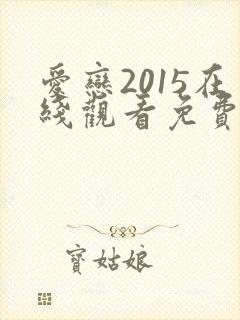 愛戀2015在
綫觀看免費
寶姑娘